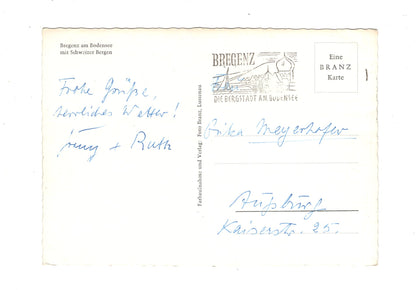 Bregenz am Bodensee
mit Schweizer Bergen
Frohe Grüße,
herrliches Wetter!
+ Ruth
Farbaufnahme und Verlag: Foto Branz, Lustenau
BREGENZ
DIE BERGSTADT AM BODENSEE
Eine
BRANZ
Karte
Erika Meyerhofer
Augsburg
Kaiserstr. 25.